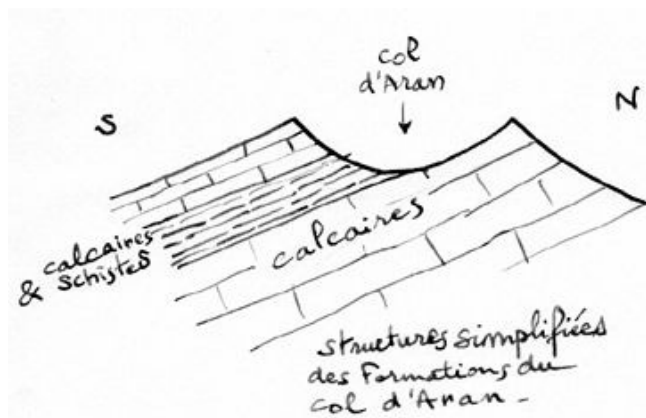 col
d'Aran
S
N
calcaires
& Schistes
calcaires
structures simplifiées
des Formations du
col d'Aran.